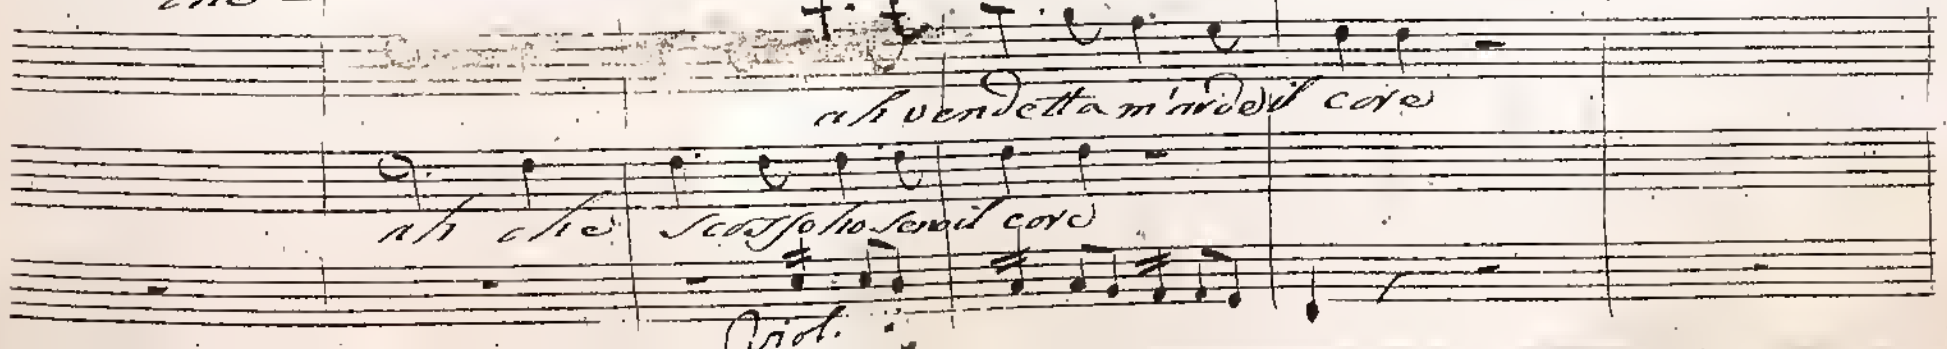 che
ah vendetta m'arde il core
ah che scosso ho seno il core
Viol.